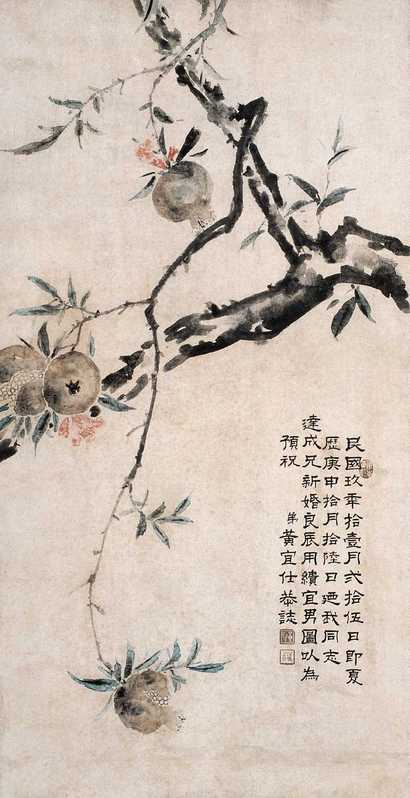 民國玖年拾壹月弍拾伍日即夏
歷庚申拾月拾陸日廼我同志
達成兄新婚良辰用繢宜男圖㠯為
預祝
弟黃宜仕恭誌